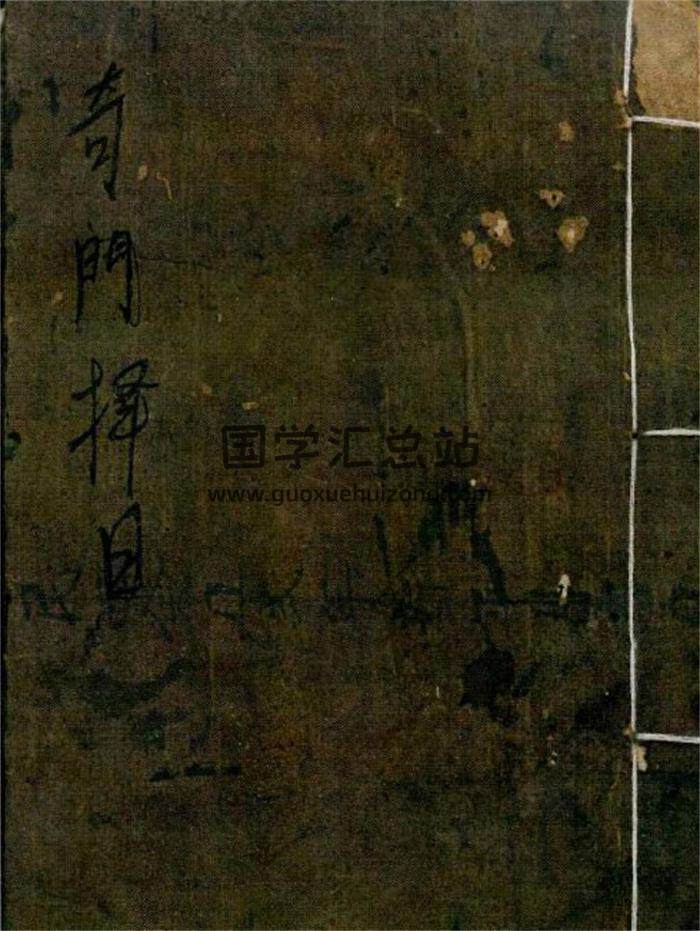 奇門择日
国学汇总站
www.guoxuehuizong.com